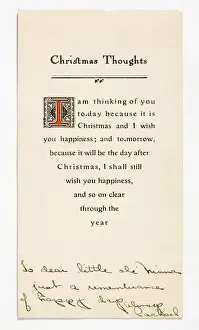 Christmas Thoughts
I am thinking of you
to-day because it is
Christmas and I wish
you happiness; and to-morrow,
because it will be the day after
Christmas, I shall still
wish you happiness,
and so on clear
through the
year
To dear little ole
just a remembrance
of happy days